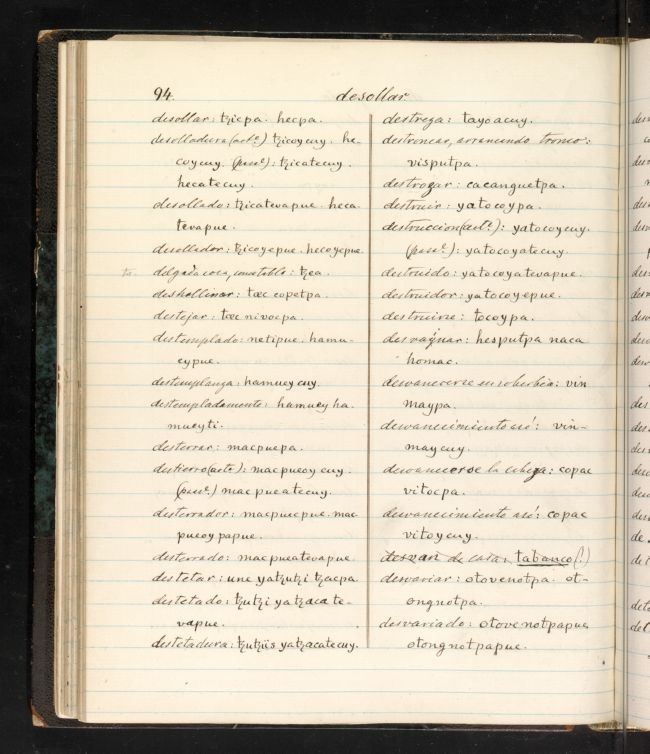 94.
desollar
desollar: tzicpa. hecpa.
desolladura (act.e) tzicoycuy. he-
coycuy. (pas.e): tzicatecuy.
hecatecuy.
desollado: tzicatevapue. heca
tevapue.
desollador: tzicoyepue. hecoyepue.
delgada cosa, como tabla: tzea.
deshollinar: tæc copetpa.
destejar: tæc nivocpa.
destemplado: netipue. hamu-
eypue.
destemplanza: hamueycuy.
destempladamente: hamuey ha.
mueyti.
desterrar: macpuepa.
destierro (act.e): macpueoycuy.
(pas.e) macpueatecuy.
desterrador: macpuecpue. mac
pueoypapue.
desterrado: macpueatevapue.
destetar: une yatzutzi tzacpa.
destetado: tzutzi yatzacate-
vapue.
destetadura: tzutzis yatzacatecuy.
destreza: tayoacuy.
destroncar, arrancando tronco:
visputpa.
destrozar: cacanguetpa.
destruir: yatocoypa.
destruccion (act.e): yatocoycuy.
(pas.e): yatocoyatecuy.
destruido: yatocoyatevapue.
destruidor: yatocoyepue.
destruirse: tocoypa.
desvaynar: hesputpa naca
homac.
desvanecerse en soberbia: vin
maypa.
desvanecimiento asi: vin-
maycuy.
desvanecerse la cabeza: copac
vitocpa.
desvanecimiento asi: copac
vitoycuy.
desvan de casa: tabanco (!)
desvariar: otovenotpa. ot-
ongnotpa.
desvariado: otovenotpapue
otongnotpapue.